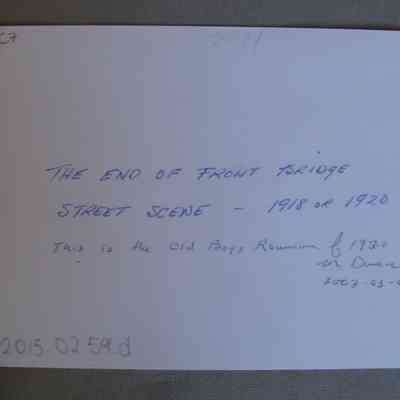 THE END OF FRONT BRIDGE
STREET SCENE - 1918 OR 1920
This is the Old Boys Reunion of 1920
2015.02.59.d